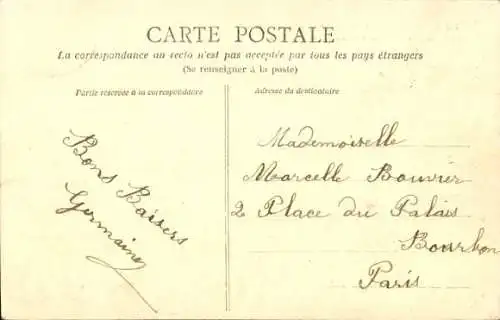 CARTE POSTALE
La correspondance au recto n'est pas acceptée par tous les pays étrangers
(Se renseigner à la poste)
Partie réservée à la correspondance
Adresse du destinataire
Bons Baisers
Germaine
Mademoiselle
Marcelle Bouvier
2 Place du Palais
Bourbon
Paris